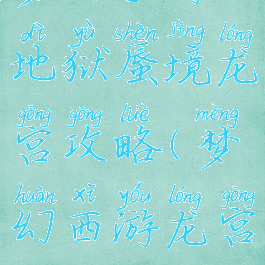 dì yù shèn jìng lóng
地狱蜃境龙
gōng gōng lüè mèng
宫攻略(梦
huàn xī yóu lóng gōng
幻西游龙宫